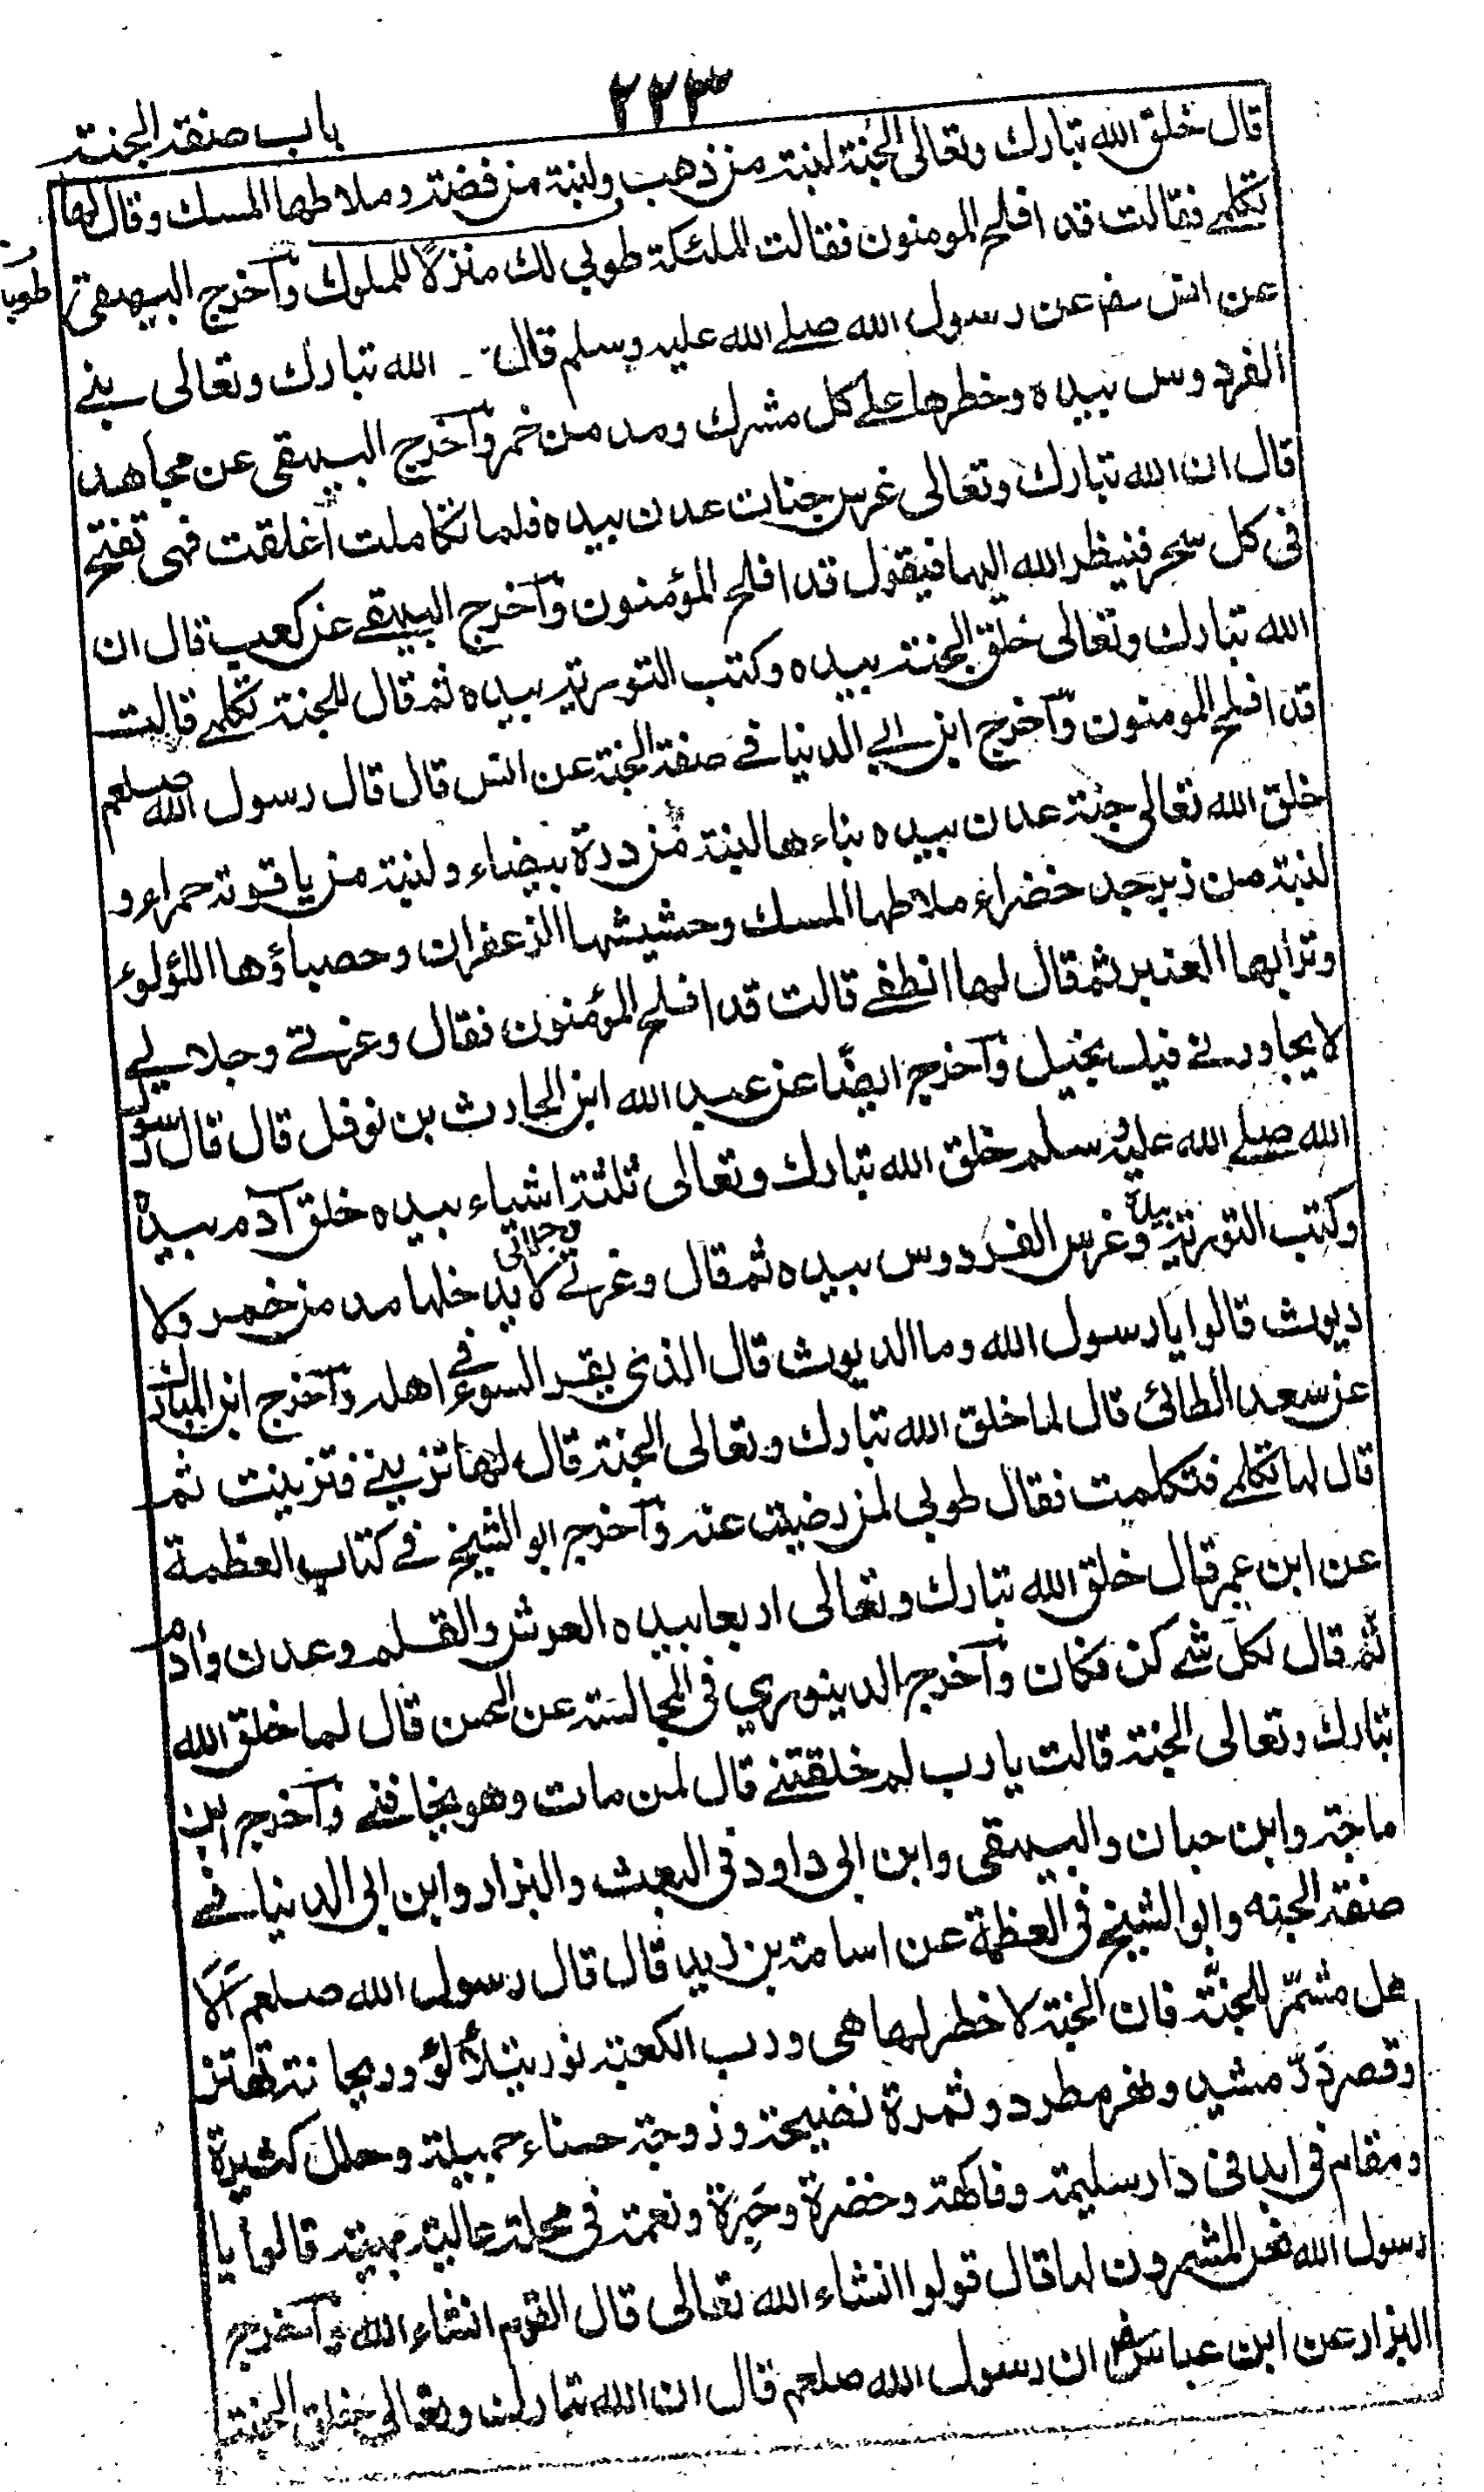 ٢٢٣
باب صفة الجنة
قال خلق الله تبارك وتعالى الجنة لبنة من ذهب ولبنة من فضة وملاطها المسك وقال لها
تكلمي فقالت قد افلح المومنون فقالت الملئكة طوبى لك منزلاً للملوك وآخرج البيهقي
طوبا
عن انس رض عن رسول الله صلے الله عليه وسلم قال الله تبارك وتعالى بنے
الفردوس بيده وخطرها علے كل مشرك ومدمن خمر وآخرج البيهقي عن مجاهد
قال ان الله تبارك وتعالى غرس جنات عدن بيده فلما تكاملت اغلقت فهي تفتح
فى كل سحر فينظر الله اليها فيقول قد افلح المؤمنون وآخرج البيهقے عن كعب قال ان
الله تبارك وتعالى خلق الجنة بيده وكتب التورية بيده ثم قال للجنة تكلمے قالت
قد افلح المومنون وآخرج ابن ابي الدنيا في صفة الجنة عن انس قال قال رسول الله صلعم
خلق الله تعالى جنة عدن بيده بناءها لبنة من درة بيضاء ولبنة من ياقوتة حمراء و
لبنة من زبرجد خضراء ملاطها المسك وحشيشها الزعفران وحصباؤها اللؤلوء
وترابها العنبر ثم قال لها انطقے قالت قد افلح المؤمنون فقال وعزتے وجلالے
لا يجاورنے فيك بخيل وآخرج ايضًا عن عبد الله ابن الحارث بن نوفل قال قال رسول
الله صلے الله عليه وسلم خلق الله تبارك وتعالى ثلثة اشياء بيده خلق آدم بيده
وكتب التورية بيده وغرس الفردوس بيده ثم قال وعزتے وجلالى لا يدخلها مدمن خمر ولا
ديوث قالوا يا رسول الله وما الديوث قال الذى يقر السوء فے اهله وآخرج ابن المبارك
عن سعد الطائى قال لما خلق الله تبارك وتعالى الجنة قال لها تزينے فتزينت ثم
قال لها تكلمے فتكلمت فقال طوبى لمن رضيت عنه وآخرج ابو الشيخ فے كتاب العظمة
عن ابن عمر قال خلق الله تبارك وتعالى اربعا بيده العرش والقلم وعدن وآدم
ثم قال لكل شے كن فكان وآخرج الدينوري فى المجالسة عن الحسن قال لما خلق الله
تبارك وتعالى الجنة قالت يا رب لم خلقتنے قال لمن مات وهو يخافنے وآخرج ابن
ماجة وابن حبان والبيهقى وابن ابى داود فى البعث والبزار وابن ابى الدنيا فے
صفة الجنه وابو الشيخ فى العظمة عن اسامة بن زيد قال قال رسول الله صلعم آلا
هل مشمّر للجنّة فان الجنة لا خطر لها هى ورب الكعبة نور يتلألؤ وريحانة تهتز
وقصر مشيد ونهر مطرد وثمرة نضيجة وزوجة حسناء جميلة وحلل كثيرة
ومقام فى ابد فى دار سليمة وفاكهة وخضرة وحبرة ونعمة فى محلة عالية بهية قالوا يا
رسول الله نحن المشمرون لها قال قولوا انشاء الله تعالى قال القوم انشاء الله وآخرج
البزار عن ابن عباس رض ان رسول الله صلعم قال ان الله تبارك وتعالى خلق الجنة